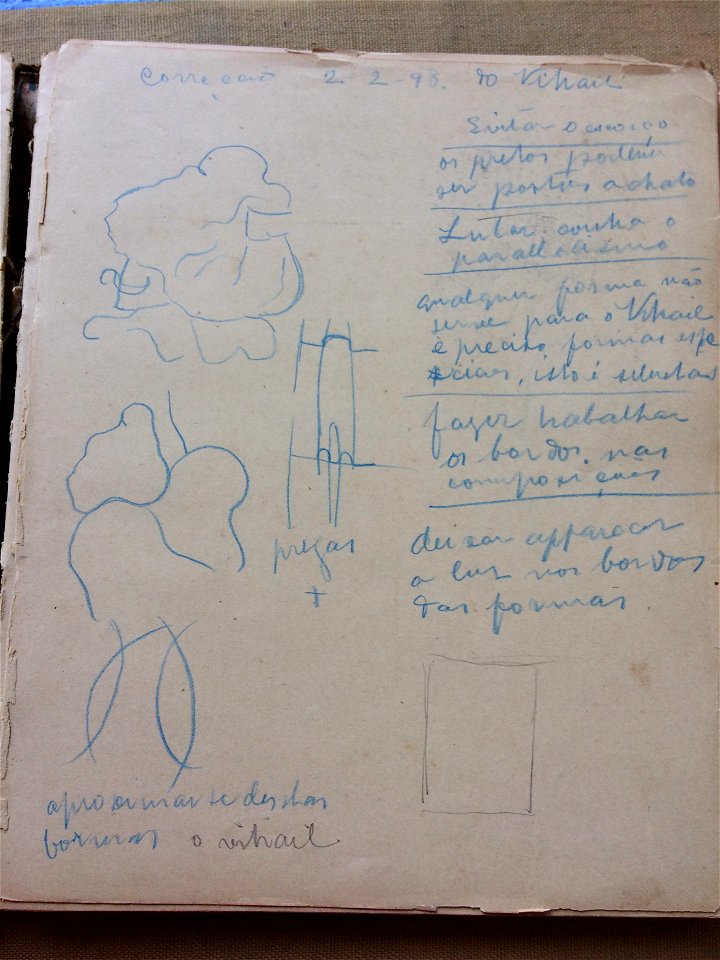 Correcção 2-2-98. do Vitrail
Evitar o escorço
os pretos podem
ser postos a chato
Lutar contra o
parallelismo
qualquer forma não
serve para o Vitrail
é preciso formas espe
ciaes, isto é selectas
fazer trabalhar
os bordos nas
composições
deixar apparecer
a luz nos bordos
das formas.
pregas
+
aproximar se destas
formas o vitrail